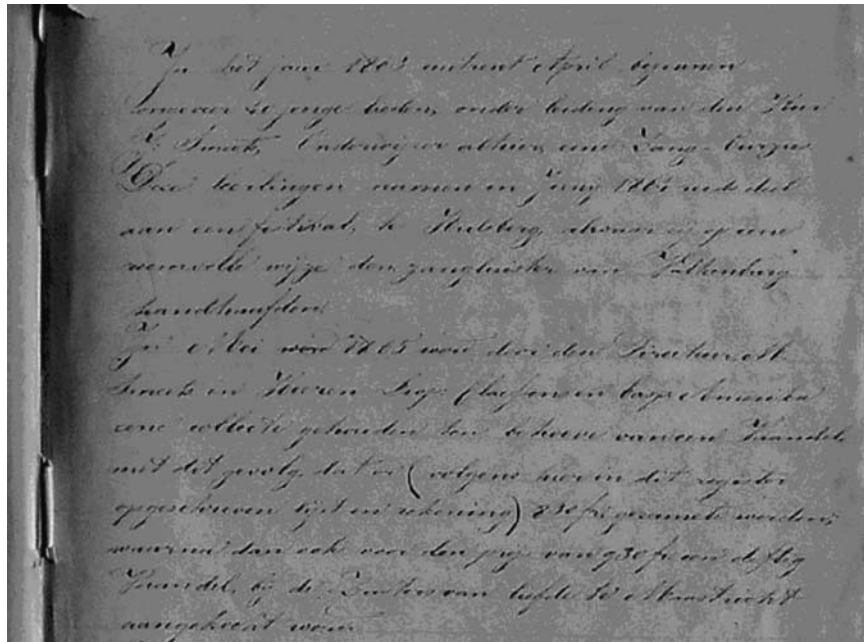 In het jaar 1863 omtrent April begonnen
ongeveer 20 jonge lieden, onder leiding van den Heer
Smeets, Onderwijzer alhier, eene Zang-
Deze leerlingen namen in Juny 1864 reeds deel
aan een festival, te Hulsberg, alwaar zij op eene
roemvolle wijze den zangluister van Valkenburg
handhaafden.
In Mei 1865 werd door den Directeur
Smeets en Heeren Claessens en
eene collecte gehouden ten behoeve van een Vaandel,
met dit gevolg, dat er (volgens hier in dit register
opgeschreven lijst en rekening) frs. gezameld werden;
waarna dan ook voor den prijs van 930 fr. een deftig
Vaandel, bij de Zusters van liefde te Maastricht
aangekocht werd.